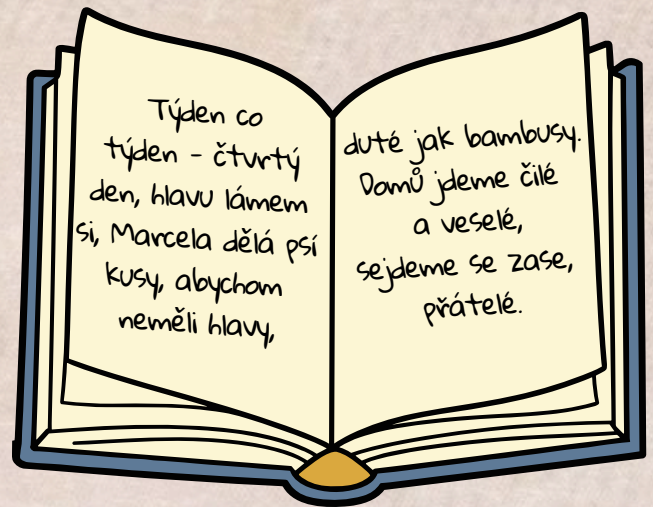 Týden co
týden - čtvrtý
den, hlavu lámem
si, Marcela dělá psí
kusy, abychom
neměli hlavy,
duté jak bambusy.
Domů jdeme čilé
a veselé,
sejdeme se zase,
přátelé.